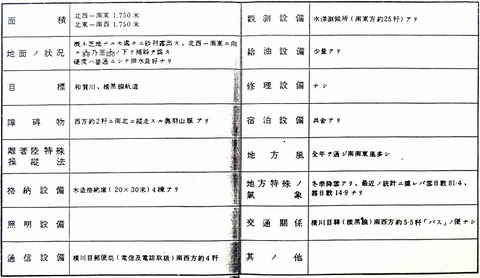 面積 北西—南東 1.750 米
北東—南西 1.750 米
地面ノ状況 概ネ芝地ナルモ處々ニ砂利露出ス、北西—南東ニ向
ノ下リ傾斜ヲ爲ス
硬度ハ普通ニシテ排水良好ナリ
目標 和賀川、横黒線軌道
障碍物 西方約2粁ニ南北ニ縦走スル奥羽山脈アリ
離著陸特殊
操縦法
格納設備 木造格納庫(20×30米)4棟アリ
照明設備
通信設備 横川目郵便局(電信及電話取扱)南西方約4粁
観測設備 水澤測候所(南東方約25粁)アリ
給油設備 少量アリ
修理設備 ナシ
宿泊設備 兵舎アリ
地方風 全年ヲ通ジ南南東風多シ
地方特殊ノ
氣象 冬季降雪アリ、最近ノ統計ニ據レバ雪日數81·4、
霧日數14·9ナリ
交通關係 横川目驛(横黒線)南西方約5·5粁「バス」ノ便ナシ
其ノ他